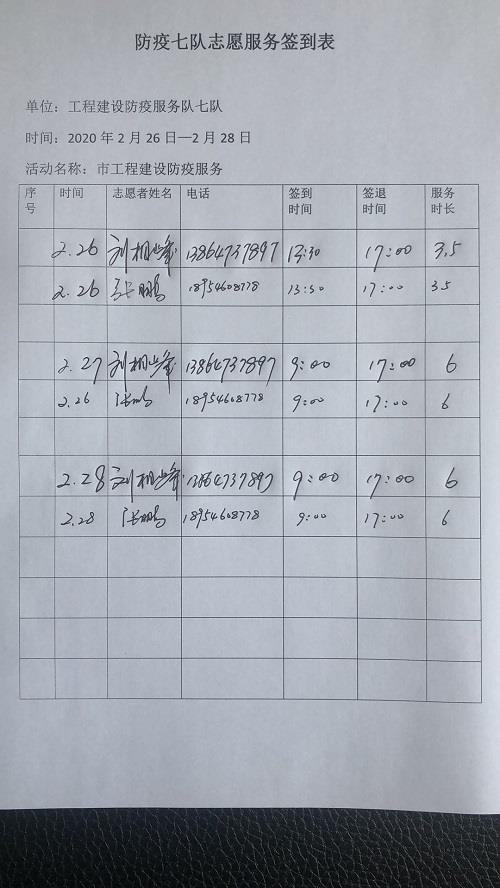 防疫七队志愿服务签到表
单位：工程建设防疫服务队七队
时间：2020年2月26日—2月28日
活动名称：市工程建设防疫服务
序号 时间 志愿者姓名 电话 签到时间 签退时间 服务时长
2.26 刘相峰 13864737897 13:30 17:00 3.5
2.26 张鹏 18954608778 13:30 17:00 3.5
2.27 刘相峰 13864737897 9:00 17:00 6
2.26 张鹏 18954608778 9:00 17:00 6
2.28 刘相峰 13864737897 9:00 17:00 6
2.28 张鹏 18954608778 9:00 17:00 6